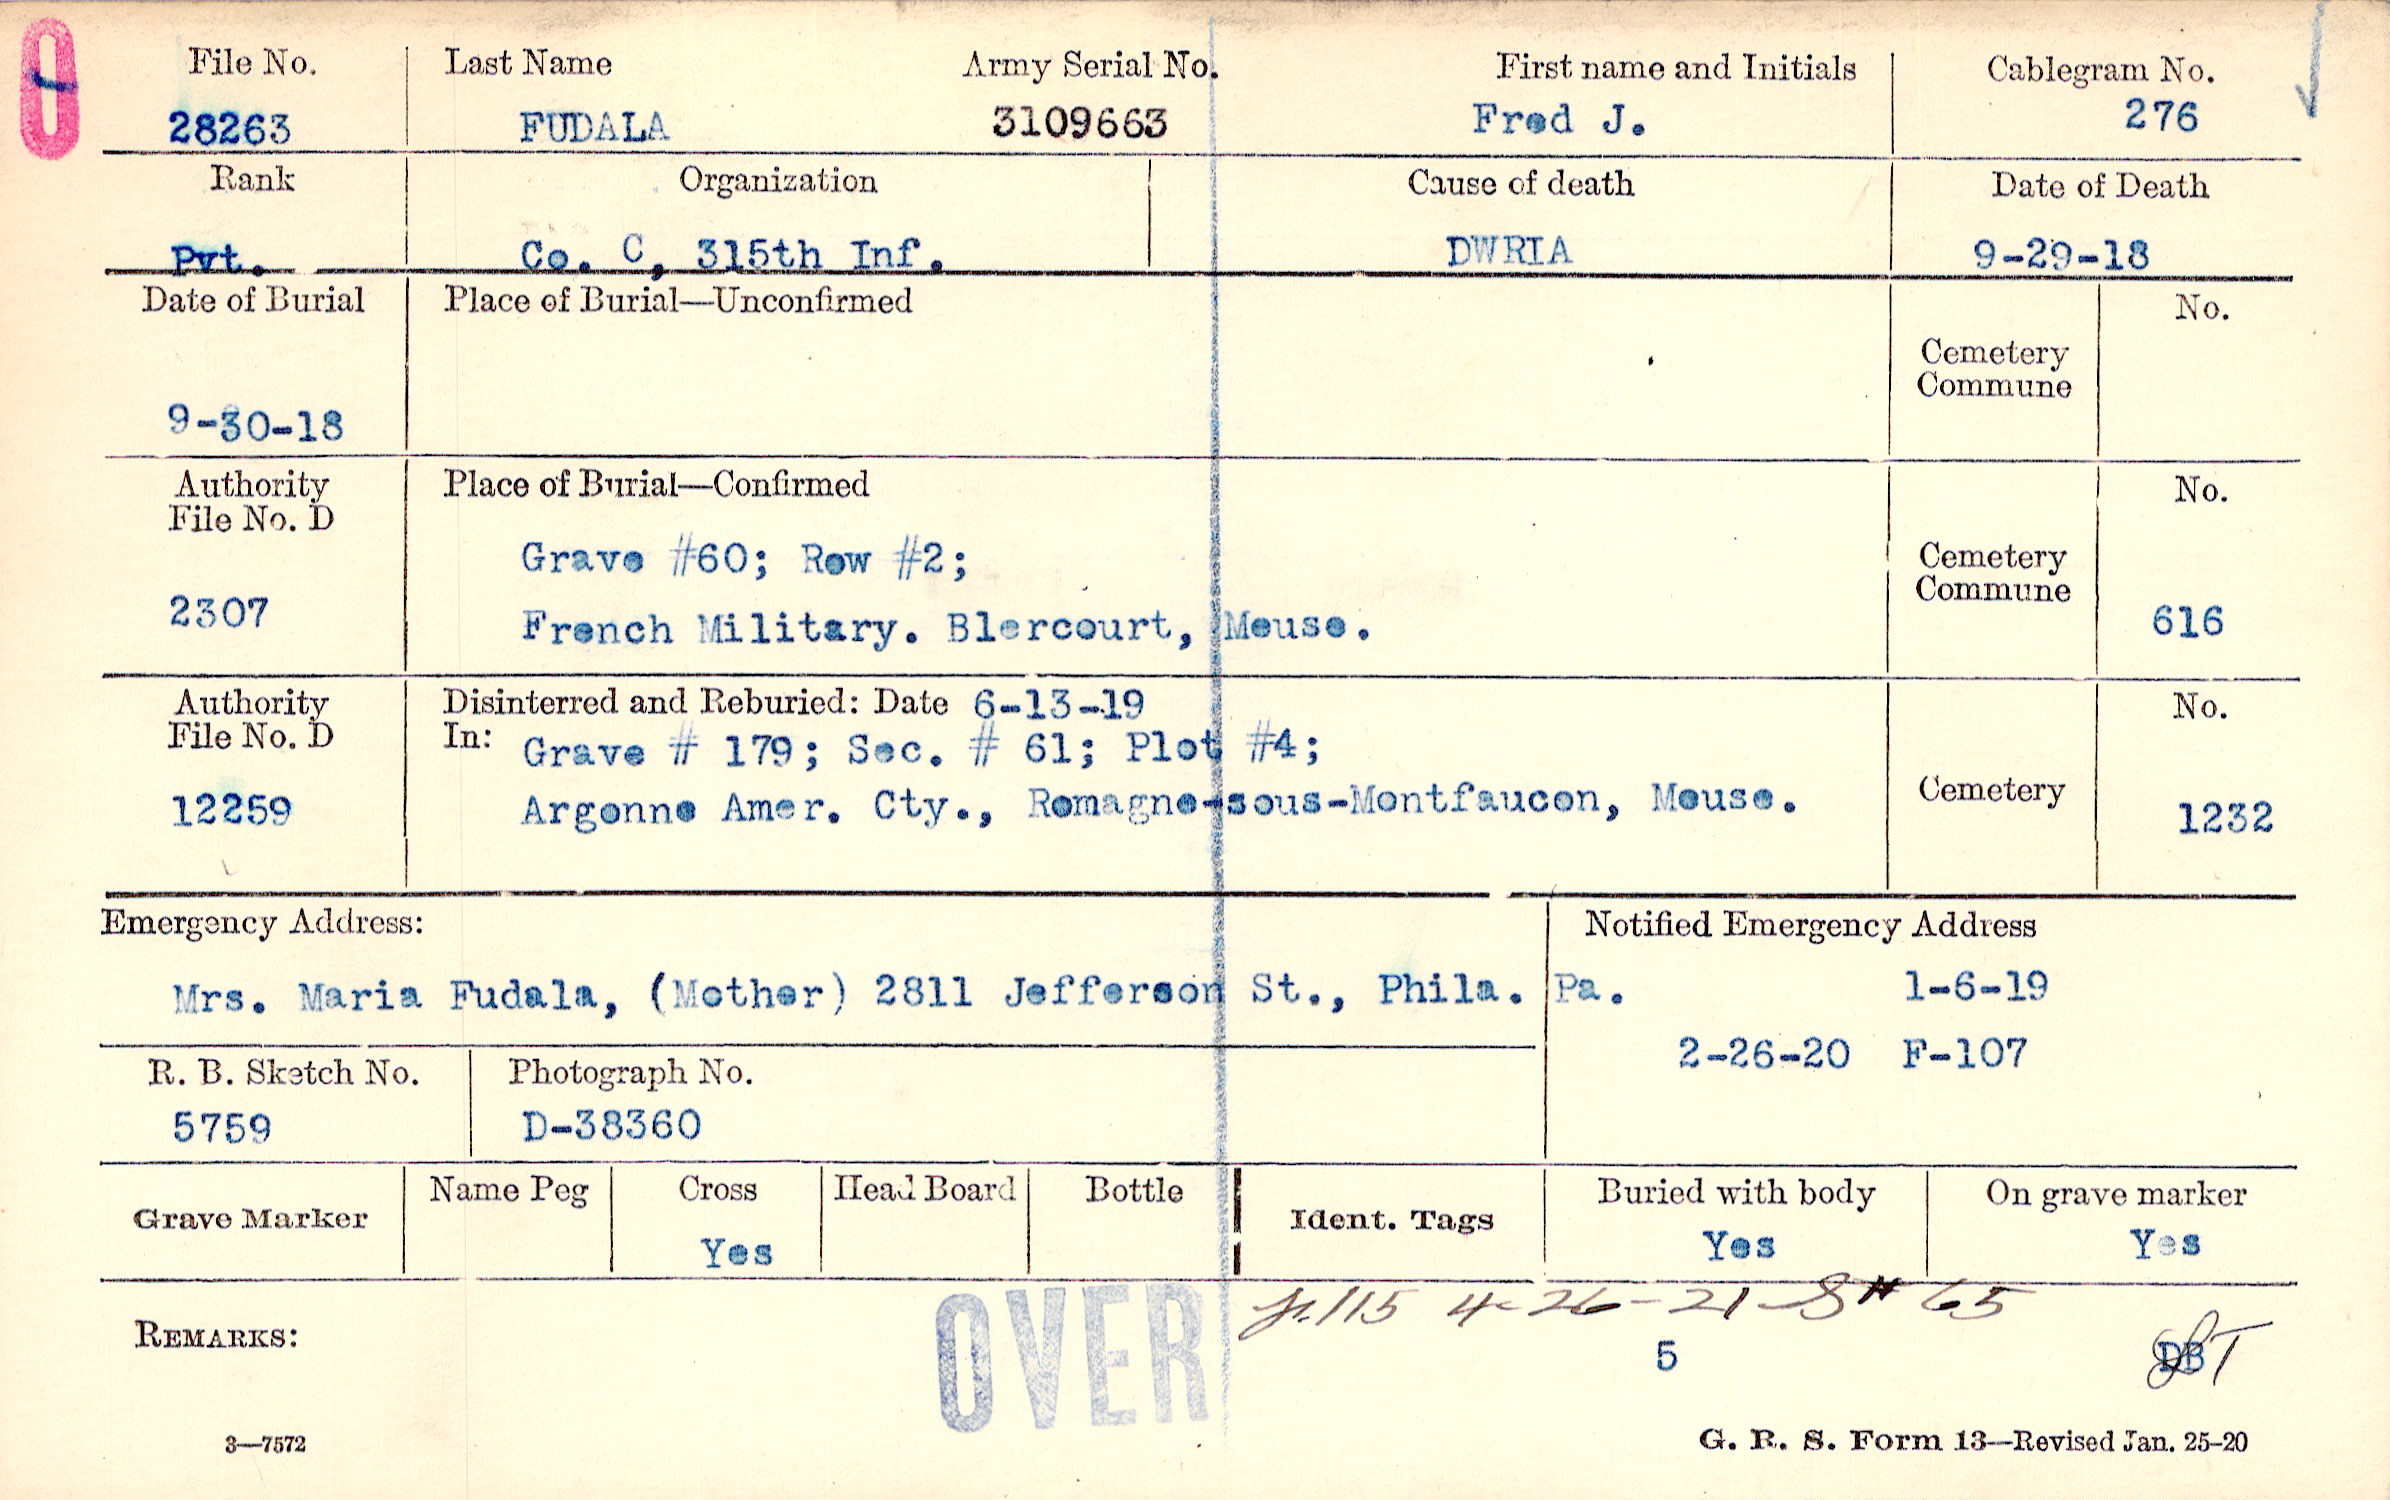 File No. Last Name Army Serial No. First name and Initials Cablegram No.
28263 FUDALA 3109663 Fred J. 276
Rank Organization Cause of death Date of Death
Pvt. Co. C, 315th Inf. DWRIA 9-29-18
Date of Burial Place of Burial—Unconfirmed No.
Cemetery
Commune
9-30-18
Authority Place of Burial—Confirmed No.
File No. D
Grave #60; Row #2; Cemetery
Commune
2307 French Military. Blercourt, Meuse. 616
Authority Disinterred and Reburied: Date 6-13-19 No.
File No. D In: Grave # 179; Sec. # 61; Plot #4;
12259 Argonne Amer. Cty., Romagne-sous-Montfaucon, Meuse. Cemetery 1232
Emergency Address: Notified Emergency Address
Mrs. Maria Fudala, (Mother) 2811 Jefferson St., Phila. Pa. 1-6-19
2-26-20 F-107
R. B. Sketch No. Photograph No.
5759 D-38360
Grave Marker Name Peg Cross Head Board Bottle Ident. Tags Buried with body On grave marker
Yes Yes Yes
115 4-26-21 S# 65
REMARKS: OVER 5 DB
3—7572 G. R. S. Form 13—Revised Jan. 25-20